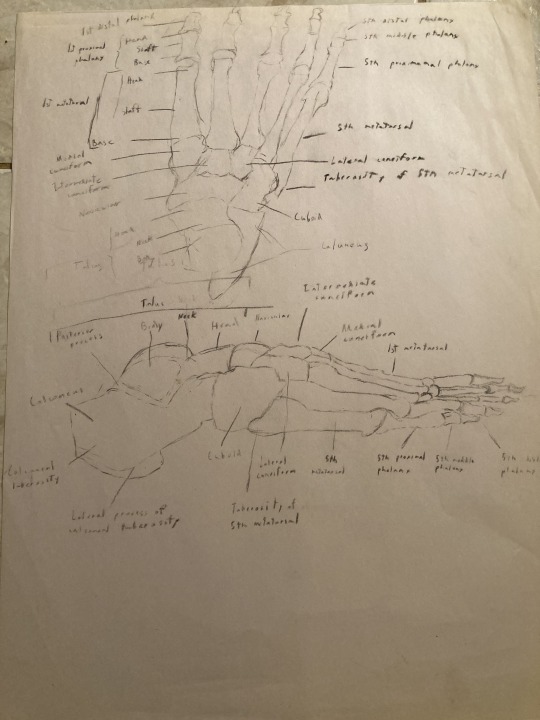 1st distal phalanx
1st proximal
phalanx
Head
Shaft
Base
1st metatarsal
Head
Shaft
Base
Medial
cuneiform
Intermediate
cuneiform
Navicular
Head
Neck
Body
Talus
5th distal phalanx
5th middle phalanx
5th proximal phalanx
5th metatarsal
Lateral cuneiform
Tuberosity of 5th metatarsal
Cuboid
Calcaneus
Talus
Posterior
process
Body
Neck
Head
Navicular
Intermediate
cuneiform
Medial
cuneiform
1st metatarsal
Calcaneus
Calcaneal
tuberosity
Lateral process of
calcaneal tuberosity
Cuboid
Lateral
cuneiform
Tuberosity of
5th metatarsal
5th
metatarsal
5th proximal
phalanx
5th middle
phalanx
5th
phalanx